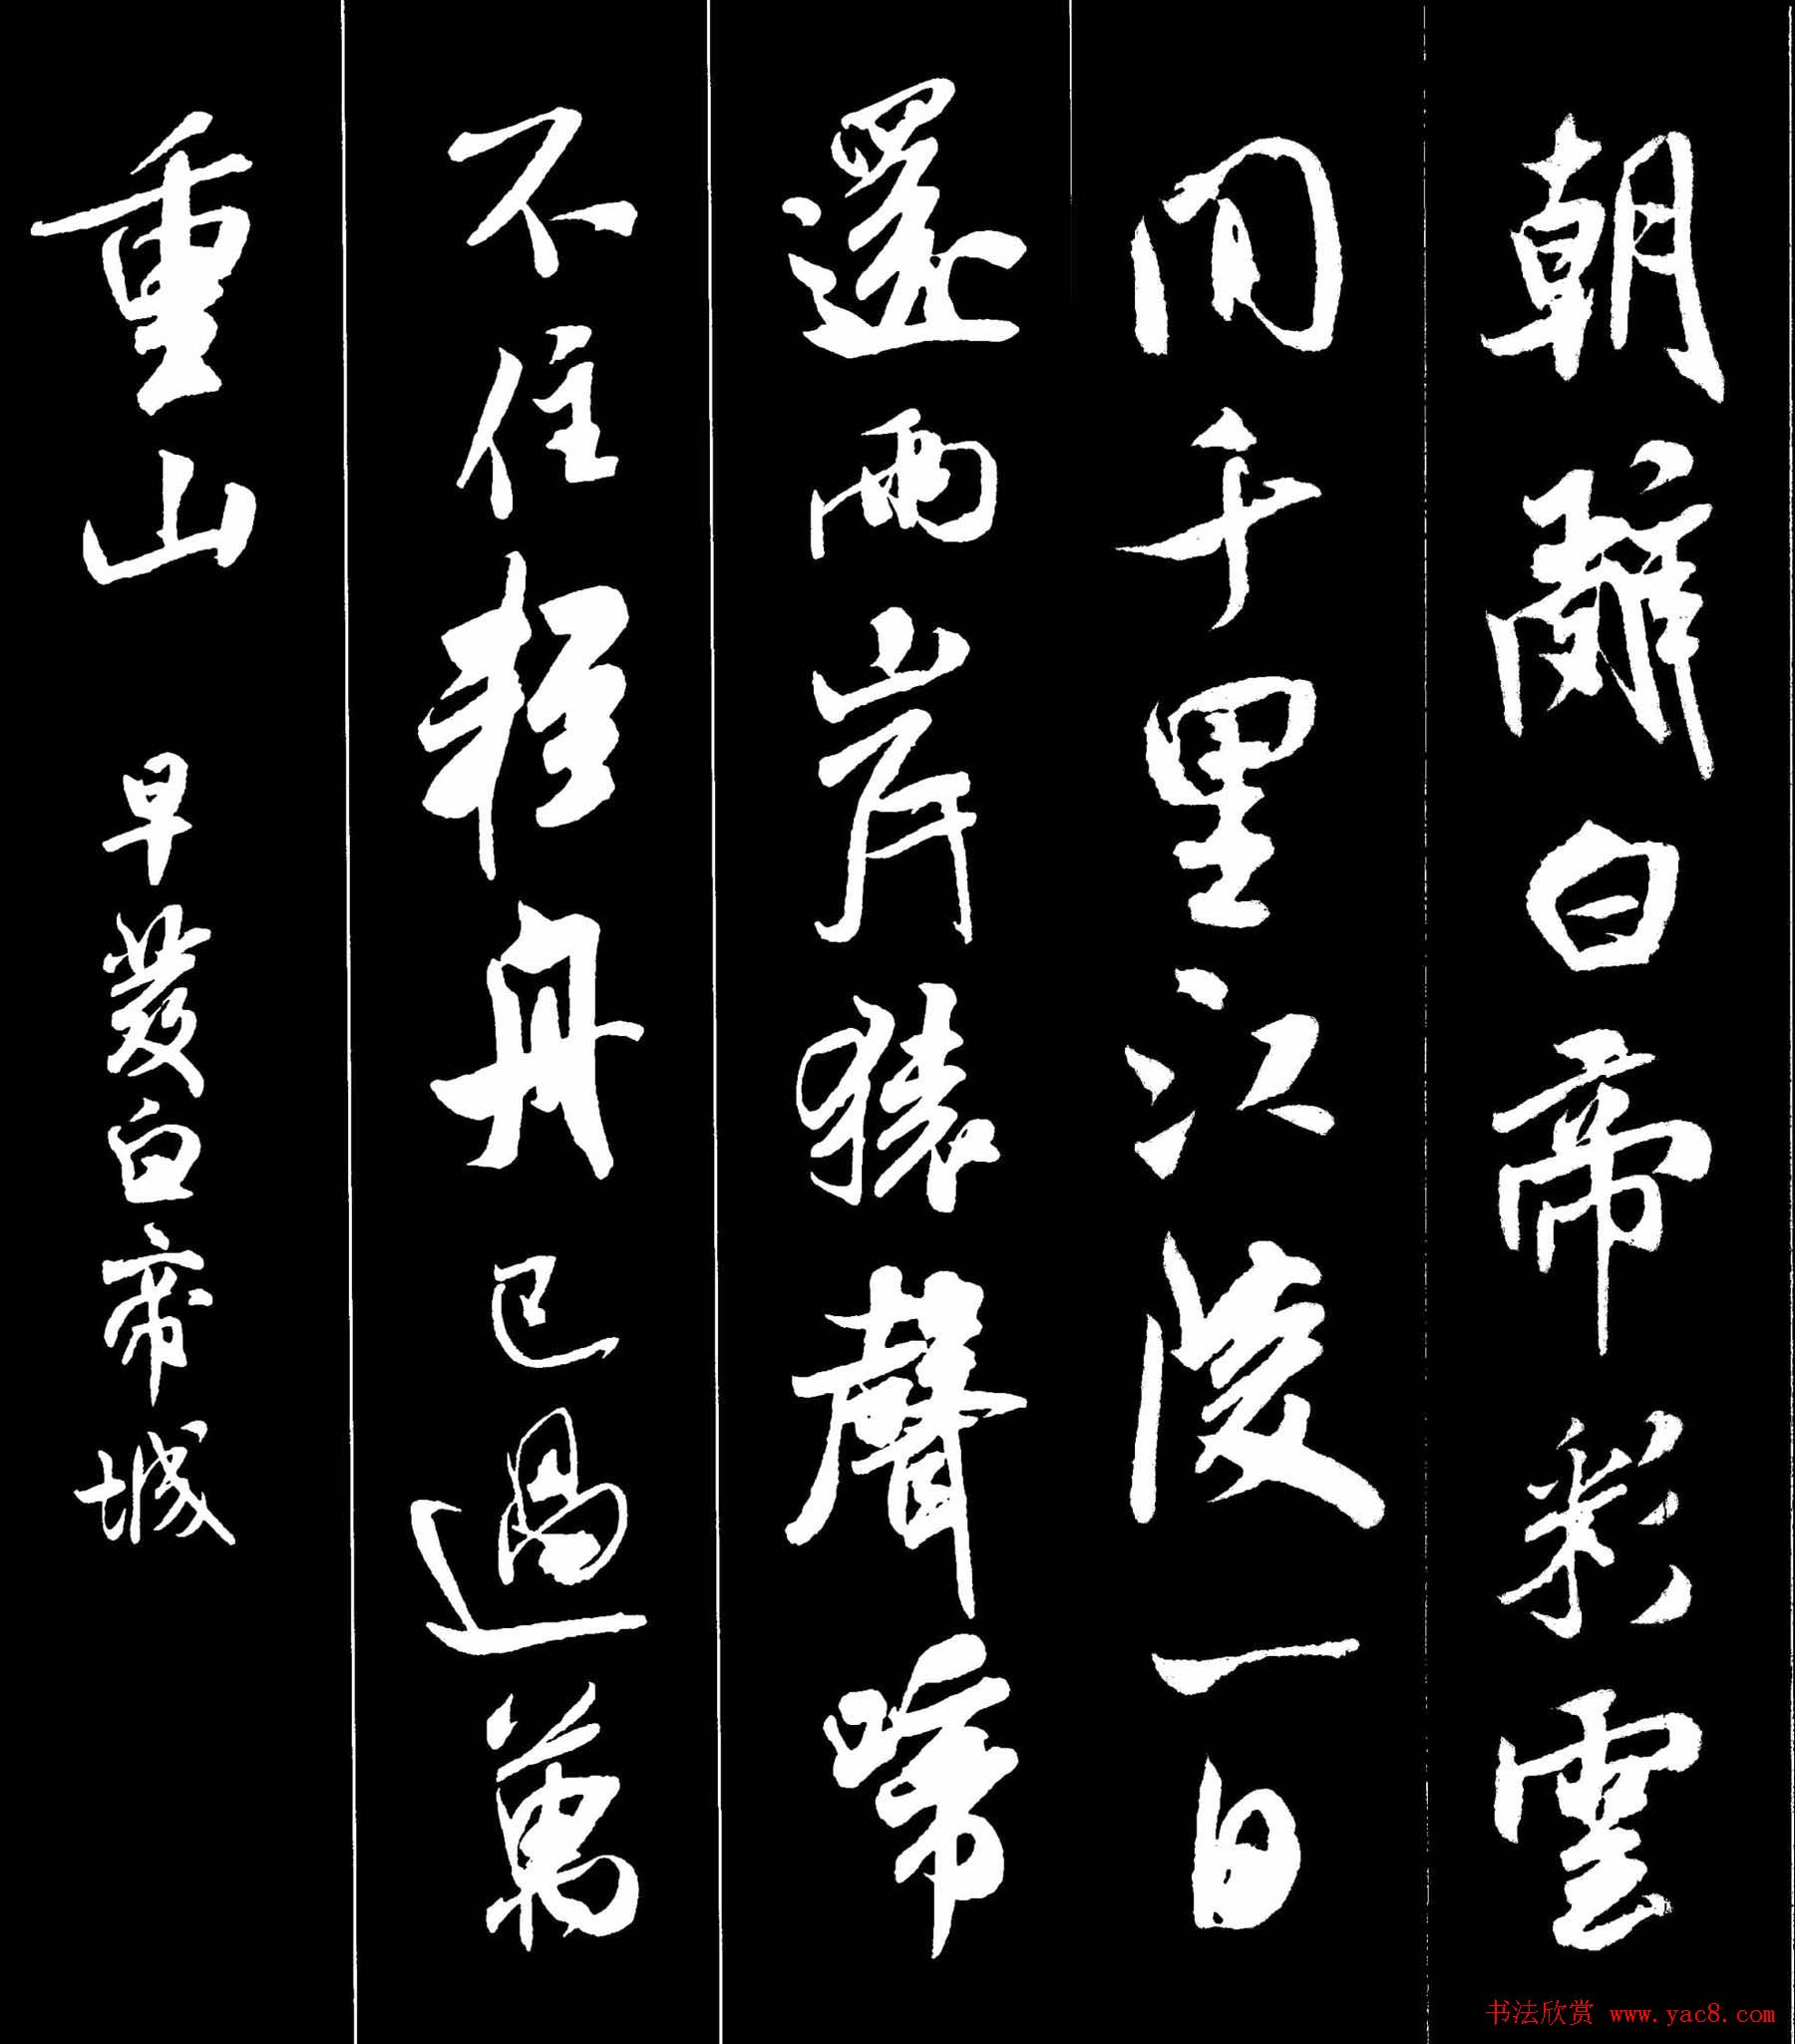 朝辭白帝彩雲
間千里江陵一日
還兩岸猿聲啼
不住輕舟已過萬
重山 早發白帝城
书法欣赏 www.yac8.com